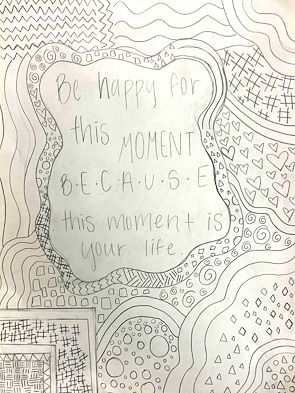 Be happy for
this MOMENT
B·E·C·A·U·S·E
this moment is
your life.